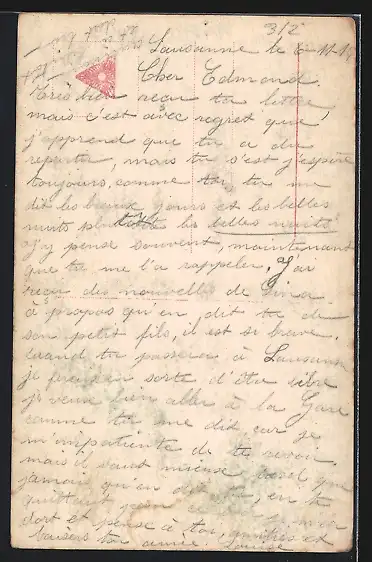 312
Lausanne le 6-11-1
Cher Edmond.
Très bien reçu ta lettre,
mais c'est avec regret que
j'apprend que tu a du
repartir, mais tu s'est j'espère
toujours, comme tu me
dit les beaux jours et les belles
nuits plutôt les belles nuits
j'y pense souvent, maintenant
que tu me l'a rappeler. J'ai
reçu des nouvelles de Gina
à propos qu'en dit tu de
son petit fils, il est si brave.
Quand tu passera à Lausanne
je ferai en sorte, d'être libre
je veux bien aller à la Gare
comme tu me dit car je
m'impatiente de te revoir
mais il vaut mieux tard que
jamais qu'en dit tu, en te
quittant
dort et pense à toi, amitiés et
baisers ton amie. Louise